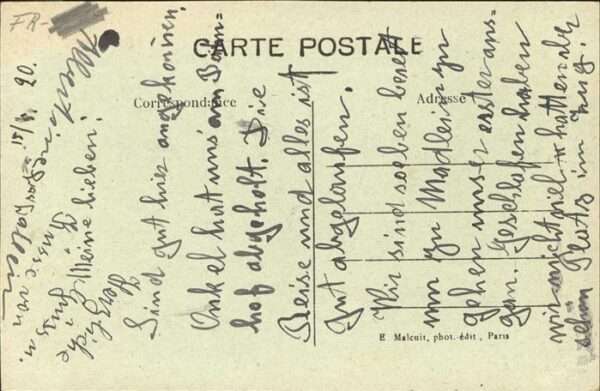 FR-
CARTE POSTALE
Correspondance
Adresse
15/4 20.
Meine lieben!
Sind gut hier angekommen.
Onkel hat uns am Bahn=
hof abgeholt. Die
Reise und alles ist
gut abgelaufen.
Wir sind soeben bereit
um zu Madlein zu
gehen unser erster aus=
gang. Geschlafen haben
wir nicht viel hatten aber
schön Platz im Zug.
Herzliche
Grüsse von
E Malcuit, phot.-édit., Paris